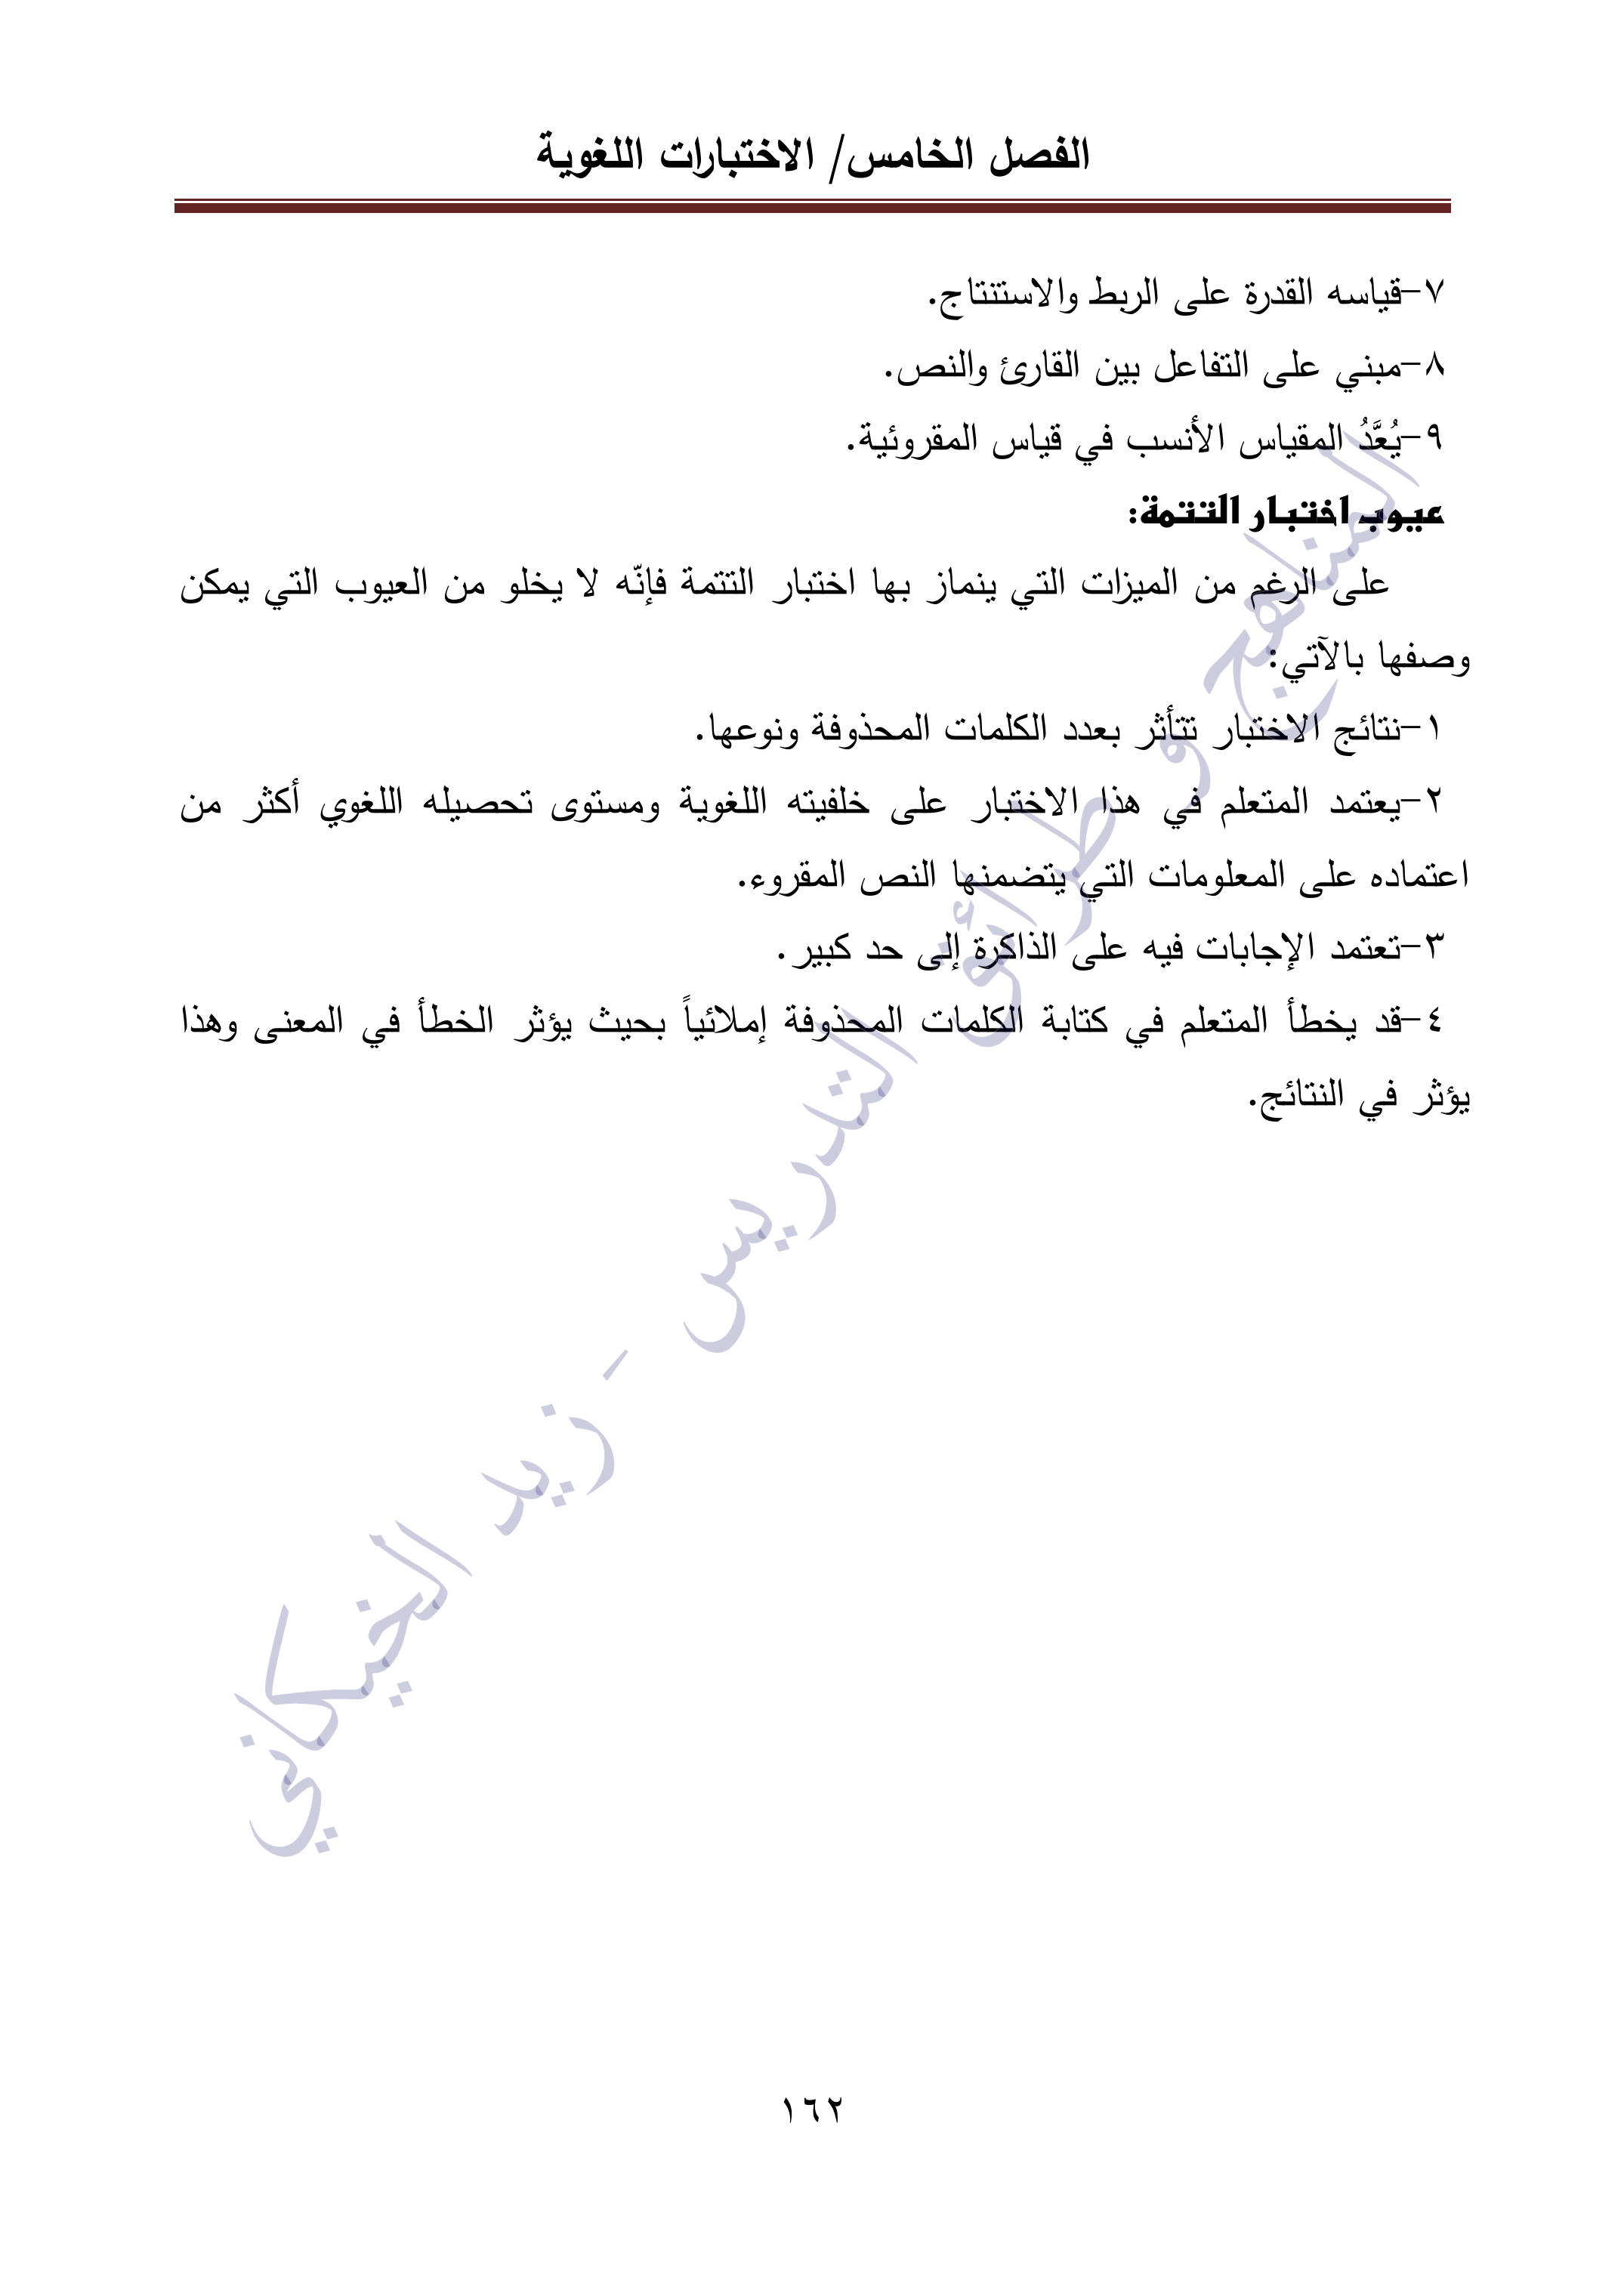 الفصل الخامس/ الاختبارات اللغوية
٧-قياسه القدرة على الربط والاستنتاج.
٨-مبني على التفاعل بين القارئ والنص.
٩-يُعَّدُ المقياس الأنسب في قياس المقروئية.
عيوب اختبار التتمة:
على الرغم من الميزات التي ينماز بها اختبار التتمة فإنّه لا يخلو من العيوب التي يمكن
وصفها بالآتي:
١-نتائج الاختبار تتأثر بعدد الكلمات المحذوفة ونوعها.
٢-يعتمد المتعلم في هذا الاختبار على خلفيته اللغوية ومستوى تحصيله اللغوي أكثر من
اعتماده على المعلومات التي يتضمنها النص المقروء.
٣-تعتمد الإجابات فيه على الذاكرة إلى حد كبير.
٤-قد يخطأ المتعلم في كتابة الكلمات المحذوفة إملائياً بحيث يؤثر الخطأ في المعنى وهذا
يؤثر في النتائج.
المناهج و طرائق التدريس - زيد الخيكاني
١٦٢